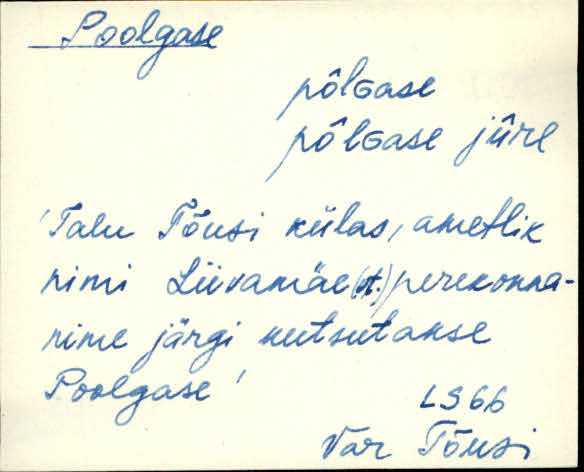 Poolgase
pôlGase
pôlGase jûre
'Talu Tõusi külas, ametlik
nimi Liivamäe (vt.) perekonna-
nime järgi kutsutakse
Poolgase'
LS66
Var Tõusi